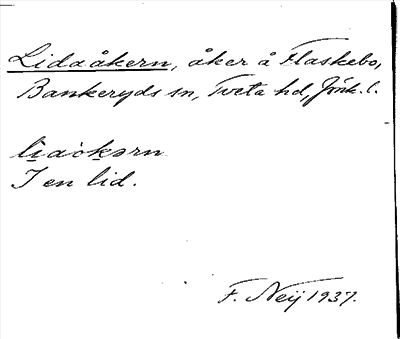 Lidaåkern, åker å Flaskebo,
Bankeryds sn, Tveta hd, Jönk. l.
I en lid.
F. Neij 1937.